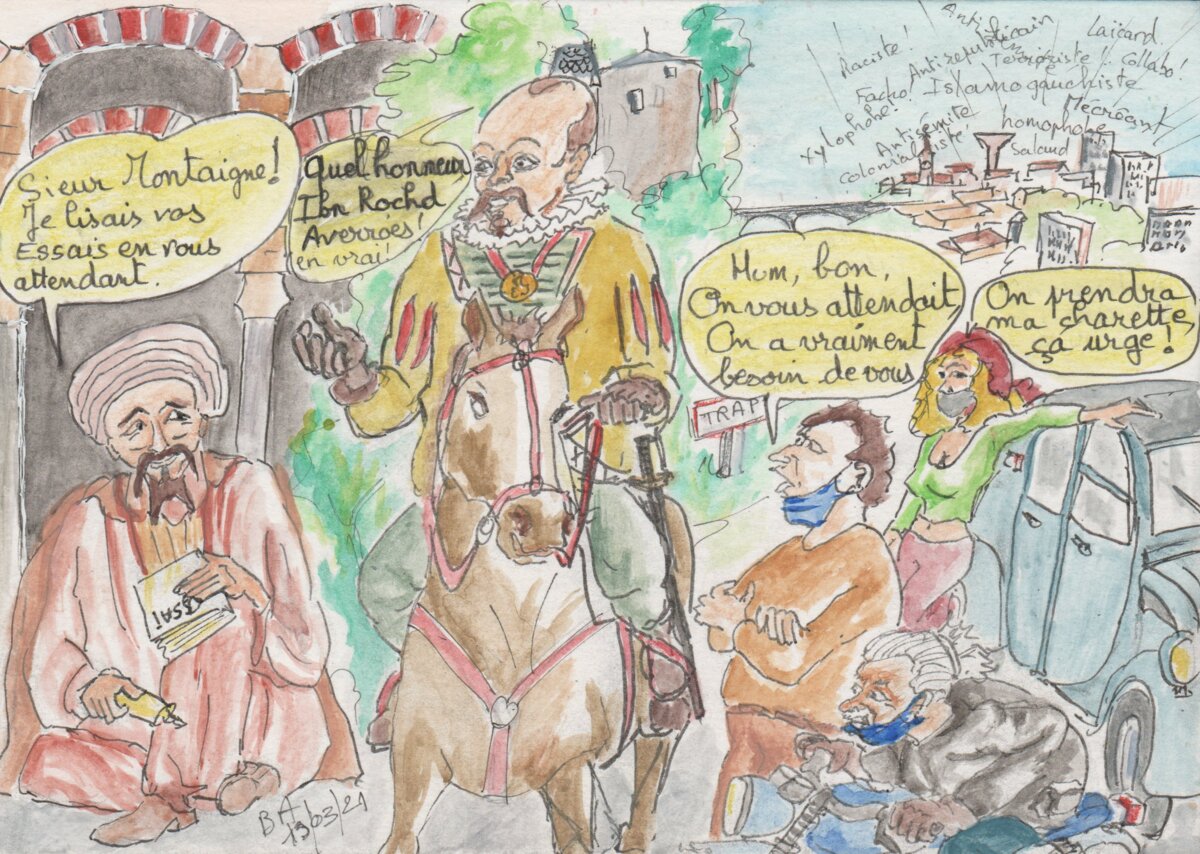 Sieur Montaigne!
Je lisais vos
Essais en vous
attendant.
Quel honneur
Ibn Rochd
Averroès!
en vrai!
Raciste!
Anti
Laïcard.
Antirepublicain
Terroriste!
Collabo!
Facho!
Islamogauchiste
Xylophobe!
Antisémite
homophobe
Mécréant
Colonialiste!
Salaud
Hum, bon,
On vous attendait
On a vraiment
besoin de vous
On prendra
ma charette
ça urge!
TRAP
ESSAI
BA
13/03/21